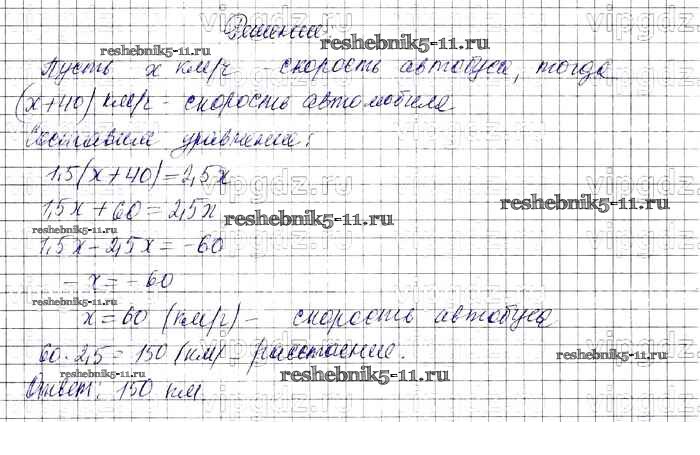 Решение.
reshebnik5-11.ru reshebnik5-11.ru
Пусть x км/ч - скорость автобуса, тогда
(x+40) км/ч - скорость автомобиля
Составим уравнение:
1,5(x+40)=2,5x
1,5x+60=2,5x
reshebnik5-11.ru reshebnik5-11.ru reshebnik5-11.ru
1,5x-2,5x=-60
-x=-60
reshebnik5-11.ru
x=60 (км/ч) - скорость автобуса
60·2,5=150 (км) - расстояние.
reshebnik5-11.ru
Ответ: 150 км
reshebnik5-11.ru reshebnik5-11.ru
vipgdz.ru